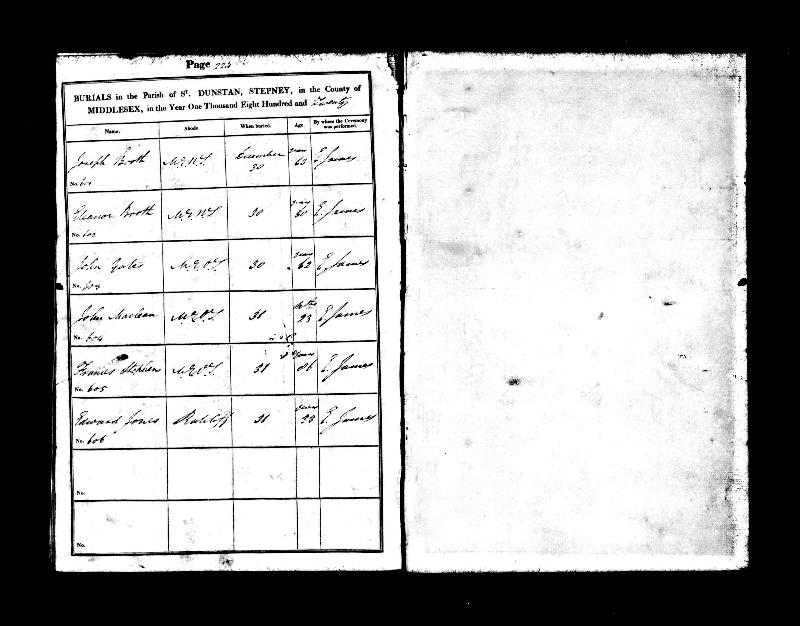 Page 224
BURIALS in the Parish of St. DUNSTAN, STEPNEY, in the County of
MIDDLESEX, in the Year One Thousand Eight Hundred and Twenty
Name. Abode. When buried. Age. By whom the Ceremony was performed.
Joseph Booth M.E.N.T. December 30 years 63 E. James
No. 601
Eleanor Booth M.E.N.T. 30 years 60 E. James
No. 602
John Yates M.E.O.T. 30 years 62 E. James
No. 603
John Maclean M.E.O.T. 31 Mths 23 E. James
No. 604
Francis Stephen M.E.O.T. 31 Years 86 E. James
No. 605
Edward Jones Ratcliff 31 years 23 E. James
No. 606
No.
No.